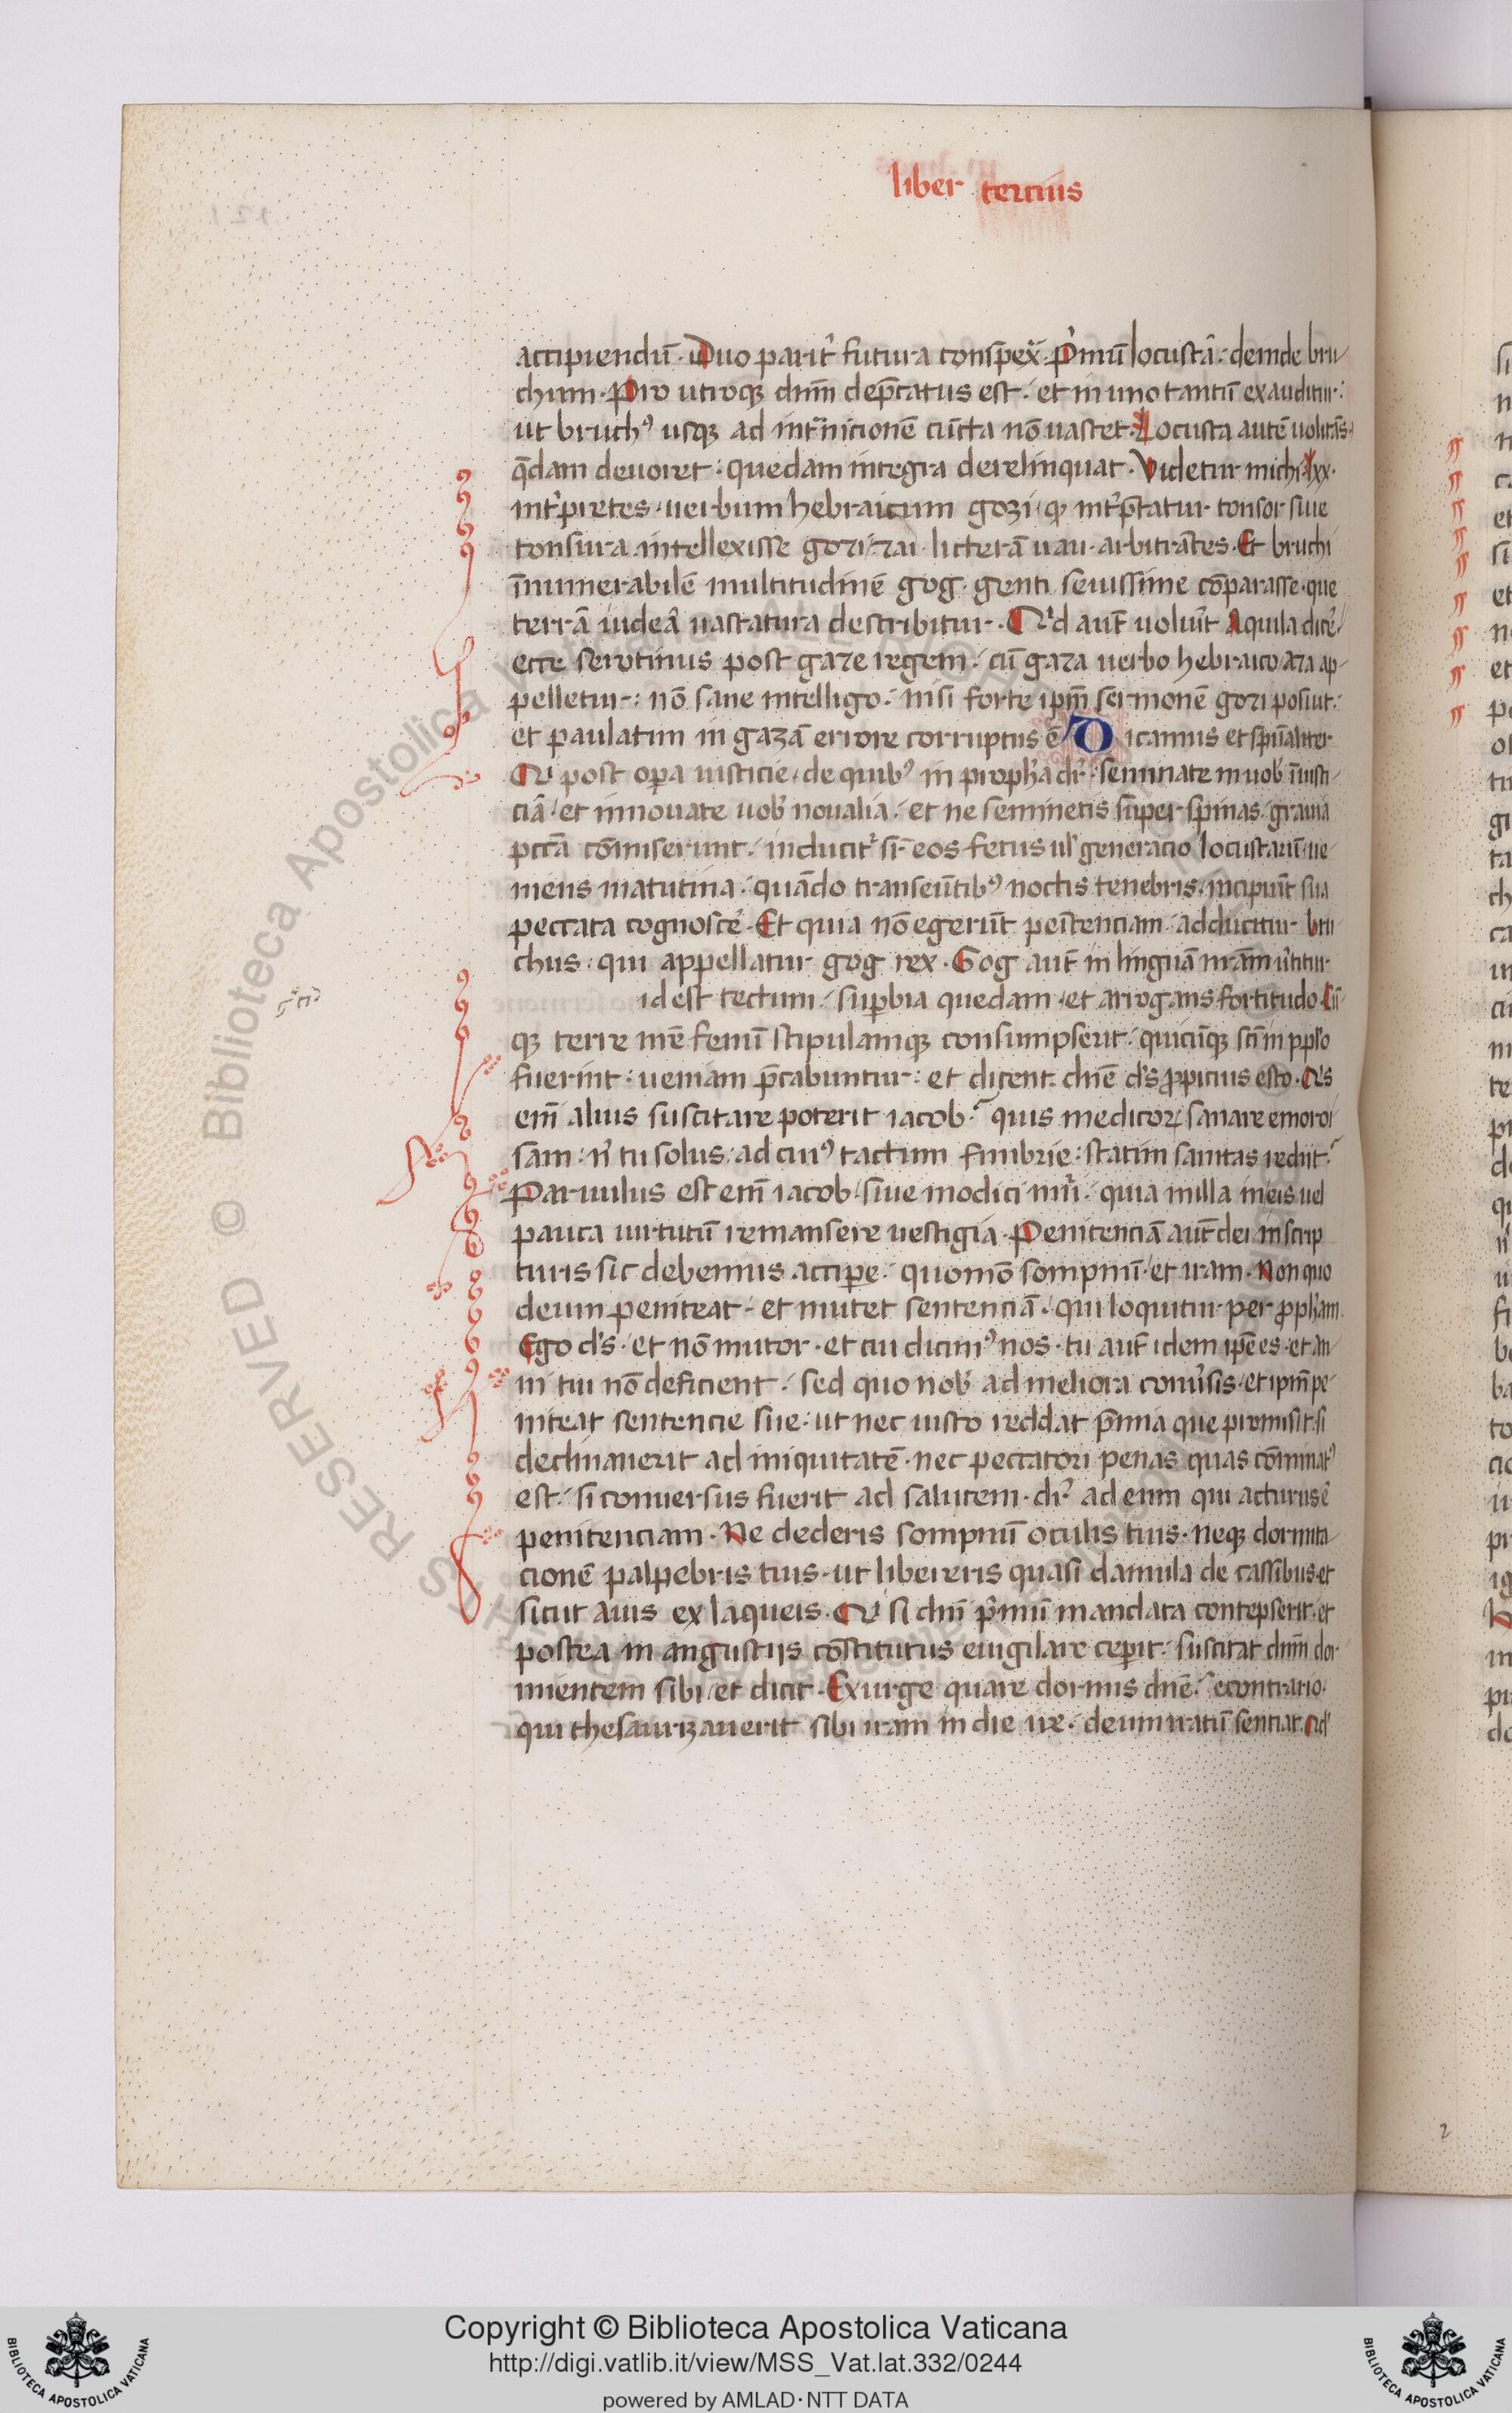 liber tercius
accipiendū. Duo parit᷑ futura conspex̄. P᷑mū locustā. deinde bru
chum. Pro utroqꝫ dnm̄ dep̄catus est. et in uno tantū exauditur.
ut bruchꝰ usqꝫ ad int᷑nicionē cūcta nō uastet. Locusta autē uolitās
q̄dam deuoret. quedam integra derelinquat. Videtur michi lxx.
int᷑pretes. uerbum hebraicum gozi. qꝫ int᷑p̄tatur tonsor siue
tonsura intellexisse gozi. zai. litterā uau. arbitrātes. Et bruchi
īnumerabilē multitudinē gog. genti seuissime cōparasse. que
terrā iudeā uastatura describitur. Qͥd aut̄ uolūīt Aquila dicē᷑
ecce serotinus post gaze regem. cū gaza uerbo hebraico aza ap
pelletur. nō sane intelligo. nisi forte ipm̄ sermonē gozi posuit.
et paulatim in gazā errore corruptus ē. Dicamus et spūaliter
Qͥ post oꝑa iusticie. de quibꝰ in propħa dr᷑. seminate in uob᷑ iusti
ciā. et innouate uob᷑ noualia. et ne seminetis super spinas. grauia
pctā cōmiserunt. inducit᷑ sr̄ eos fetus ul᷑ generatio locustarū ue
niens matutina. quādo transeūtibꝰ noctis tenebris. incipiūt sua
peccata cognoscē᷑. Et quia nō egerūt peītenciam. adducitur bru
chus. qui appellatur gog rex. Gog aut̄ in linguā nr̄am ūtitur
id est tectum. suꝑbia quedam. et arrogans fortitudo. Cū
qꝫ terre mē fenū stipulamqꝫ consumpserit. quicūqꝫ scī in ppl᷑o
fuerint. ueniam p̄cabuntur. et dicent. dnē ds̄ ꝓpicius esto. Qͥs
em̄ alius suscitare poterit iacob. quis medicoꝝ sanare emoroi
sam. n᷑ tu solus. ad cuiꝰ tactum fimbrie. statim sanitas rediit.
Paruulus est em̄ iacob. siue modici nūi. quia nulla in eis uel
pauca uirtutū remansere uestigia. Penitenciā aut̄ dei in scrip
turis sic debemus acciꝑe. quomō sompnū. et iram. Non quo
deum peniteat. et mutet sentenciā. qui loquitur per ꝓpħam.
Ego ds̄. et nō mutor. et cui dicimꝰ nos. tu aut̄ idem ipē es. et an
ni tui nō deficient. sed quo nob᷑ ad meliora conūsis. et ipm̄ pe
niteat sentencie sue. ut nec iusto reddat p̄mia que promisit. si
declinauerit ad iniquitatē. nec peccatori penas quas cōminatꝰ
est. si conuersus fuerit ad salutem. dr᷑ ad eum qui acturus ē
penitenciam. Ne dederis sompnū oculis tuis. neqꝫ dormita
cionē palpebris tuis. ut libereris quasi damula de cassibus. et
sicut auis ex laqueis. Qͥ si dnī p᷑mū mandata contepserit. et
postea in angustijs cōstitutus euigilare ceꝑit. suscitat dnm̄ dor
mientem sibi. et dicit. Exurge quare dormis dnē. econtrario.
qui thesaurizauerit sibi iram in die ire. deum iratū sentiat.
2
Copyright © Biblioteca Apostolica Vaticana
http://digi.vatlib.it/view/MSS_Vat.lat.332/0244
powered by AMLAD·NTT DATA
BIBLIOTECA APOSTOLICA VATICANA
BIBLIOTECA APOSTOLICA VATICANA